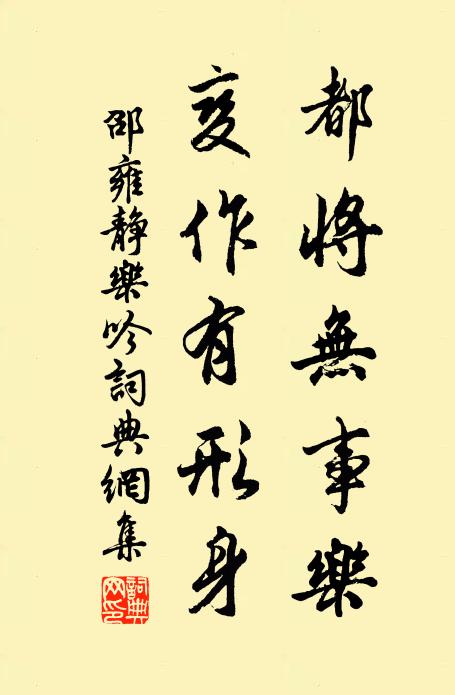 都將無事樂
变作有形身
邵雍靜樂吟詞典網集
詞典网印